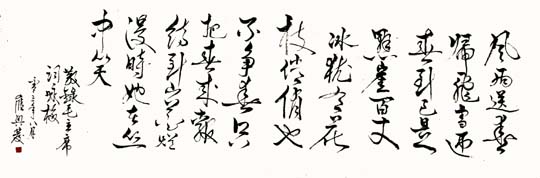 風雨送春
歸飛雪迎
春到已是
懸崖百丈
冰猶有花
枝俏俏也
不争春只
把春来報
待到山花爛
漫時她在丛
中笑
敬録毛主席
詞咏梅
年八月